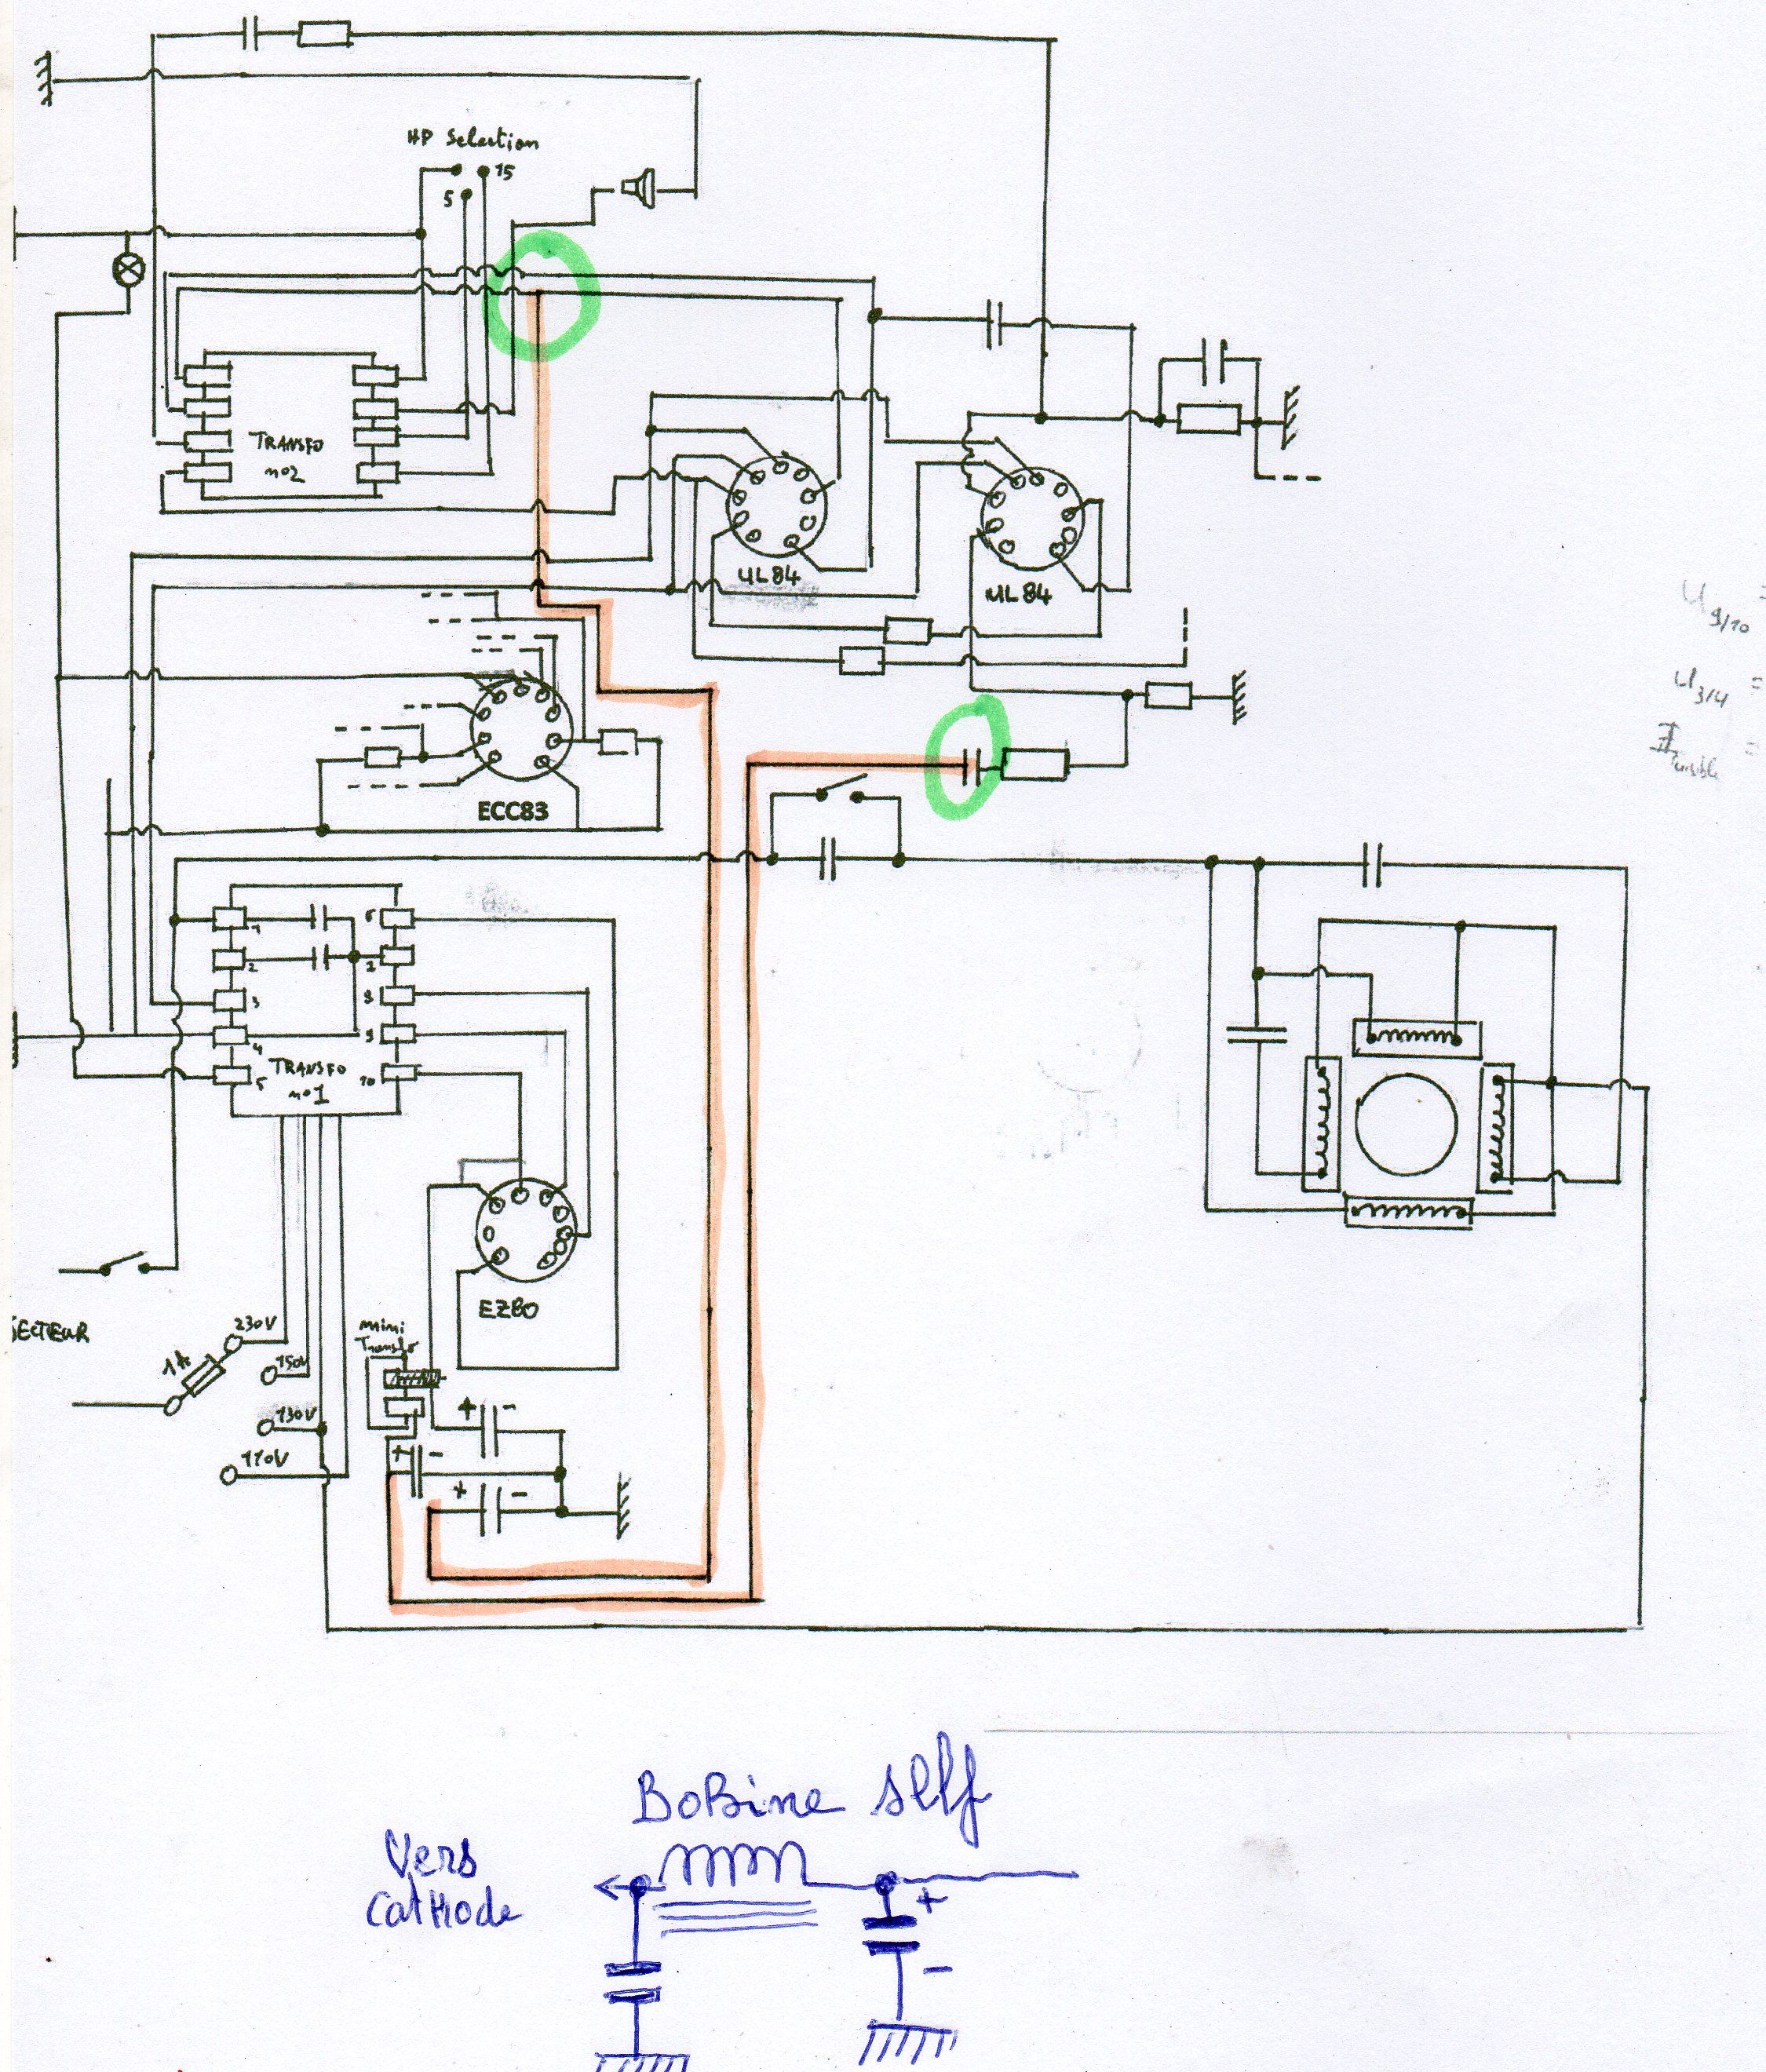 HP Selection
15
5
TRANSFO
no2
UL84
UL84
U 9/10 =
U 3/4 =
I fusible =
ECC83
1
6
2
7
3
8
4
9
5
10
TRANSFO
no1
EZ80
JECTEUR
230V
1A
150V
130V
110V
mini
Transfo
+ -
+ -
+ -
BoBine self
Vers
CatHode
+
-